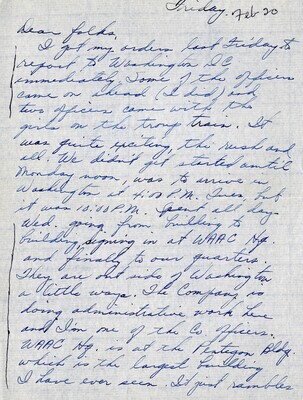 Friday, Feb 20
Dear folks,
I got my orders last Friday to
report to Washington D.C.
immediately. Some of the officers
came on ahead (I did) and
two officers came with the
girls on the troop train. It
was quite exciting, the rush and
all. We didn't get started until
Monday noon, was to arrive in
Washington at 4:00 P.M. Tues. but
it was 10:00 P.M. Spent all day
Wed. going from building to
building, signing in at WAAC Hq.
and finally to our quarters.
They are out side of Washington
a little ways. The Company is
doing administrative work here
and I'm one of the Co. officers.
WAAC Hq. is at the Pentagon Bldg.
which is the largest building
I have ever seen. It just rambles